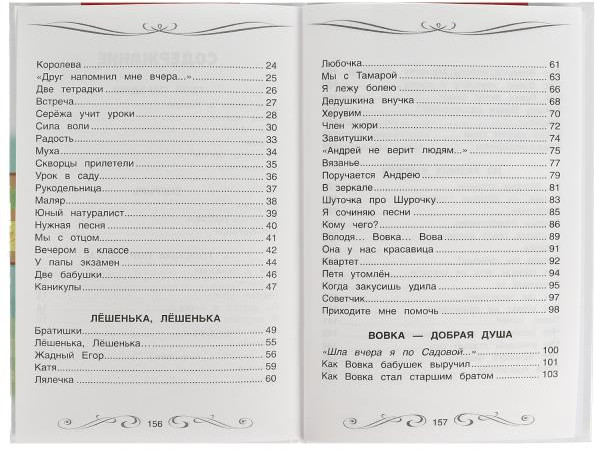 Королева 24
«Друг напомнил мне вчера...» 25
Две тетрадки 26
Встреча 27
Серёжа учит уроки 28
Сила воли 30
Радость 33
Муха 34
Скворцы прилетели 35
Урок в саду 36
Рукодельница 37
Маляр 38
Юный натуралист 39
Нужная песня 40
Мы с отцом 41
Вечером в классе 42
У папы экзамен 44
Две бабушки 46
Каникулы 47
ЛЁШЕНЬКА, ЛЁШЕНЬКА
Братишки 49
Лёшенька, Лёшенька 55
Жадный Егор 56
Катя 59
Лялечка 60
156
Любочка 61
Мы с Тамарой 63
Я лежу болею 66
Дедушкина внучка 68
Херувим 70
Член жюри 72
Завитушки 74
«Андрей не верит людям...» 75
Вязанье 77
Поручается Андрею 79
В зеркале 81
Шуточка про Шурочку 83
Я сочиняю песни 85
Кому чего? 86
Володя... Вовка... Вова 89
Она у нас красавица 91
Квартет 92
Петя утомлён 94
Когда закусишь удила 95
Советчик 97
Приходите мне помочь 98
ВОВКА — ДОБРАЯ ДУША
«Шла вчера я по Садовой...» 100
Как Вовка бабушек выручил 101
Как Вовка стал старшим братом 103
157